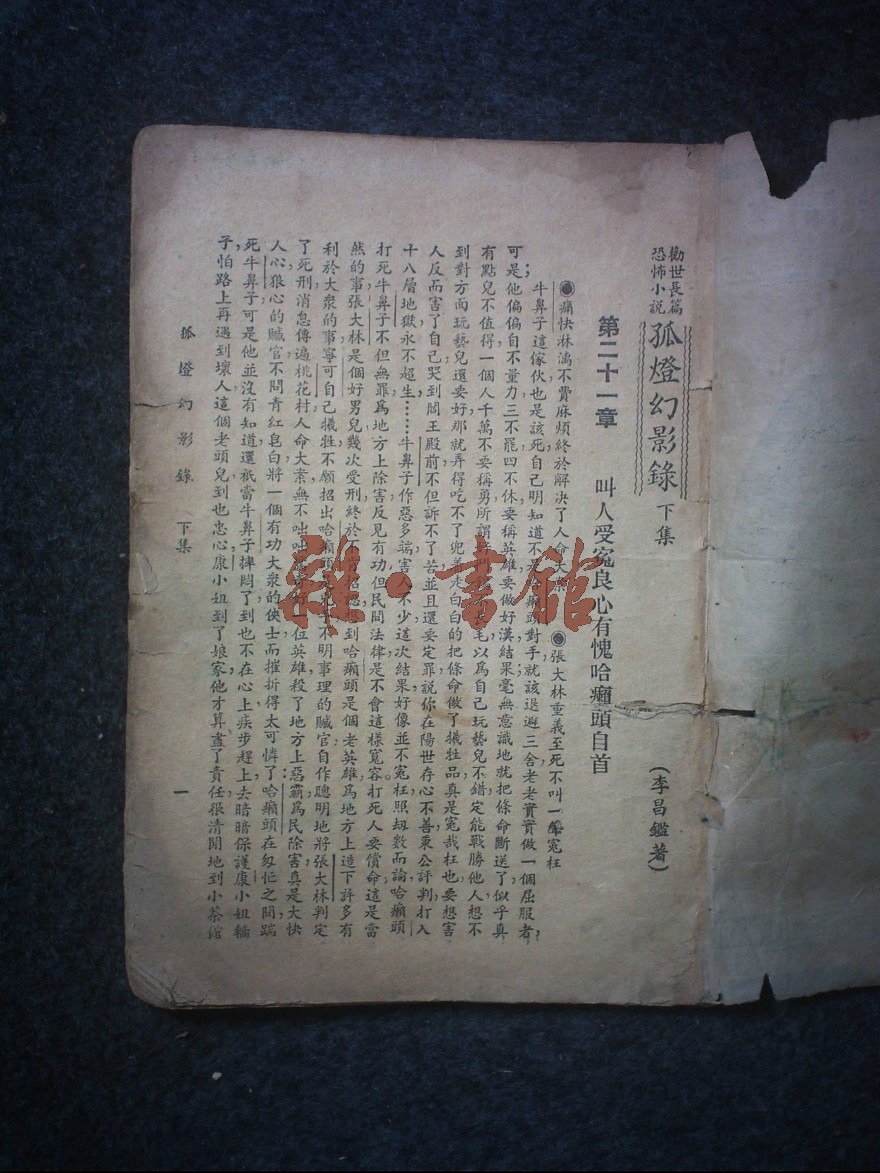 勸世長篇
恐怖小說
孤燈幻影錄 下集
(李昌鑑著)
第二十一章 叫人受冤良心有愧哈癩頭自首
◉痛快淋漓不費麻煩終於解決了人命大案 ◉張大林重義至死不叫一聲冤枉
牛鼻子這傢伙也是該死自己明知道不是哈癩頭對手就該退避三舍老老實實做一個屈服者,
可是他偏偏自不量力三不罷四不休要稱英雄要做好漢結果毫無意識地就把條命斷送了似乎真
有點兒不值得一個人千萬不要稱勇所謂 毛以為自己玩藝兒不錯定能戰勝他人想不
到對方面玩藝兒還要好那就弄得吃不了兜着走白白的把條命做了犧牲品真是冤哉枉也要想害
人反而害了自己哭到閻王殿前不但訴不了苦並且還要定罪說你在陽世存心不善秉公評判打入
十八層地獄永不超生……牛鼻子作惡多端害人不少這次結果好像並不冤枉照刼數而論哈癩頭
打死牛鼻子不但無罪爲地方上除害反見有功但民間法律是不會這樣寬容。打死人要償命這是當
然的事張大林是個好男兒幾次受刑終於不肯招 想到哈癩頭是個老英雄爲地方上造下許多有
利於大衆的事寧可自己犧牲不願招出哈癩頭 不明事理的贓官自作聰明地將張大林判定
了死刑消息傳遍桃花村人命大案無不咄咄 位英雄殺了地方上惡霸爲民除害真是大快
人心狠心的贓官不問青紅皂白將一個有功大衆的俠士而摧折得太可憐了哈癩頭在匆忙之間踹
死牛鼻子可是他並沒有知道還祇當牛鼻子摔悶了到也不在心上疾步趕上去暗暗保護康小姐轎
子怕路上再遇到壞人這個老頭兒到也忠心康小姐到了娘家他才算盡了責任很清閒地到小茶館
孤燈幻影錄 下集 一
雜·書館